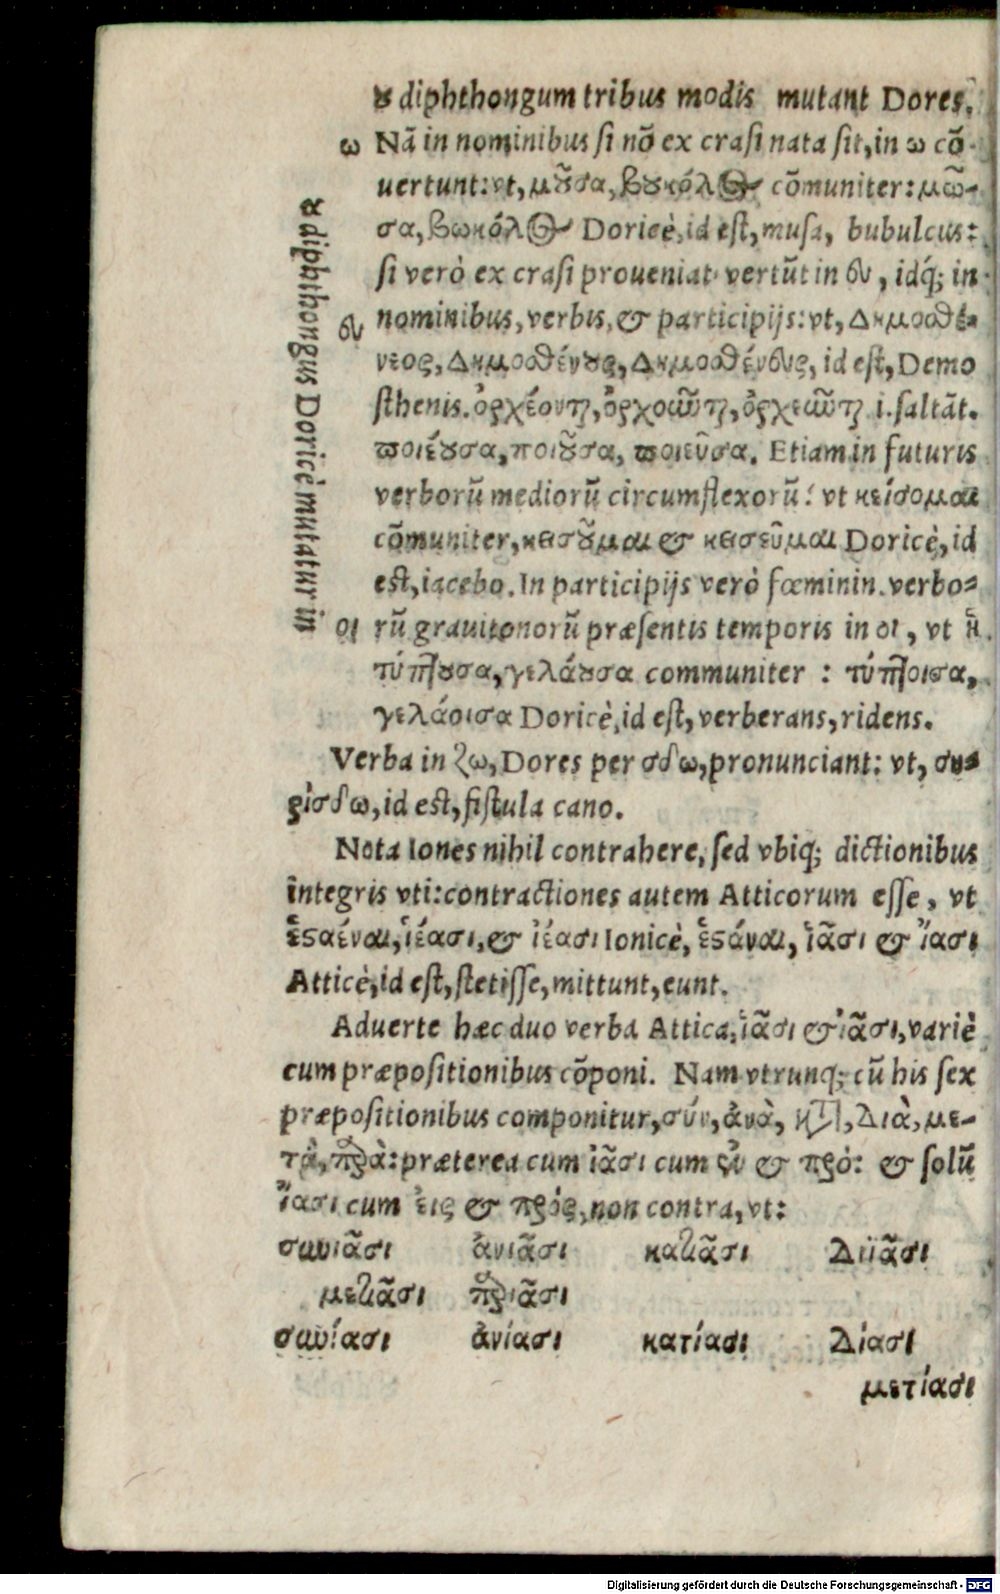 ȣ diphthongum tribus modis mutant Dores.
ω Nā in nominibus si nō ex crasi nata sit, in ω cō-
uertunt: vt, μȣ͂σα, βȣκόλος cōmuniter: μῶ-
σα, βωκόλος Doricè, id est, musa, bubulcus:
si verò ex crasi proueniat vertūt in ευ, idq́; in
ευ nominibus, verbis, & participijs: vt, Δημοσθέ-
νεος, Δημοσθένȣς, Δημοσθένευς, id est, Demo
sthenis. ὀρχέονται, ὀρχοῦνται, ὀρχεῦνται i. saltāt.
ποιέȣσα, ποιȣ͂σα, ποιεῦσα. Etiam in futuris
verborū mediorū circumflexorū: vt κείσομαι
cōmuniter, κεισȣ͂μαι & κεισεῦμαι Doricè, id
est, iacebo. In participijs verò fœminin. verbo-
οι rū grauitonorū præsentis temporis in οι, vt ἡ
τύπτȣσα, γελάȣσα communiter : τύπτοισα,
γελάοισα Doricè, id est, verberans, ridens.
ȣ diphthongus Doricè mutatur in
Verba in ζω, Dores per σδω, pronunciant: vt, συ-
ρίσδω, id est, fistula cano.
Nota Iones nihil contrahere, sed vbiq; dictionibus
integris vti: contractiones autem Atticorum esse, vt
ἑϛαέναι, ἱέασι, & ἰέασι Ionicè, ἑϛάναι, ἱᾶσι & ἴασι
Atticè, id est, stetisse, mittunt, eunt.
Aduerte hæc duo verba Attica, ἱᾶσι & ἰᾶσι, variè
cum præpositionibus cōponi. Nam vtrunq; cū his sex
præpositionibus componitur, σύν, ἀνὰ, κατὰ, Διὰ, με-
τὰ, παρὰ: præterea cum ἱᾶσι cum σὺν & πρό: & solū
ἴασι cum εἰς & πρός, non contra, vt:
συνιᾶσι ἀνιᾶσι καθιᾶσι Διϊᾶσι
μεθιᾶσι παριᾶσι
συνίασι ἀνίασι κατίασι Δίασι
μετίασι
Digitalisierung gefördert durch die Deutsche Forschungsgemeinschaft - DFG